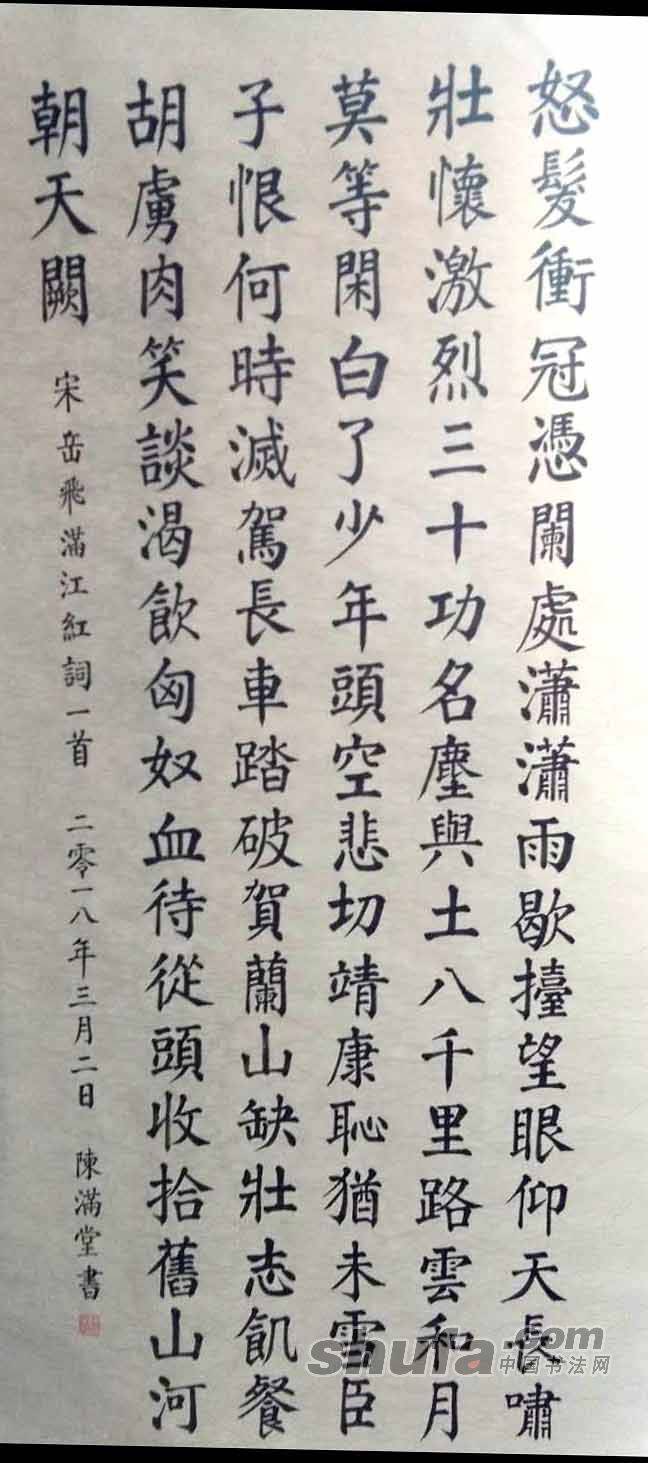 怒髮衝冠憑闌處瀟瀟雨歇擡望眼仰天長嘯
壯懷激烈三十功名塵與土八千里路雲和月
莫等閑白了少年頭空悲切靖康恥猶未雪臣
子恨何時滅駕長車踏破賀蘭山缺壯志飢餐
胡虜肉笑談渴飲匈奴血待從頭收拾舊山河
朝天闕
宋岳飛滿江紅詞一首 二零一八年三月二日 陳滿堂書
shufa.com
中国书法网